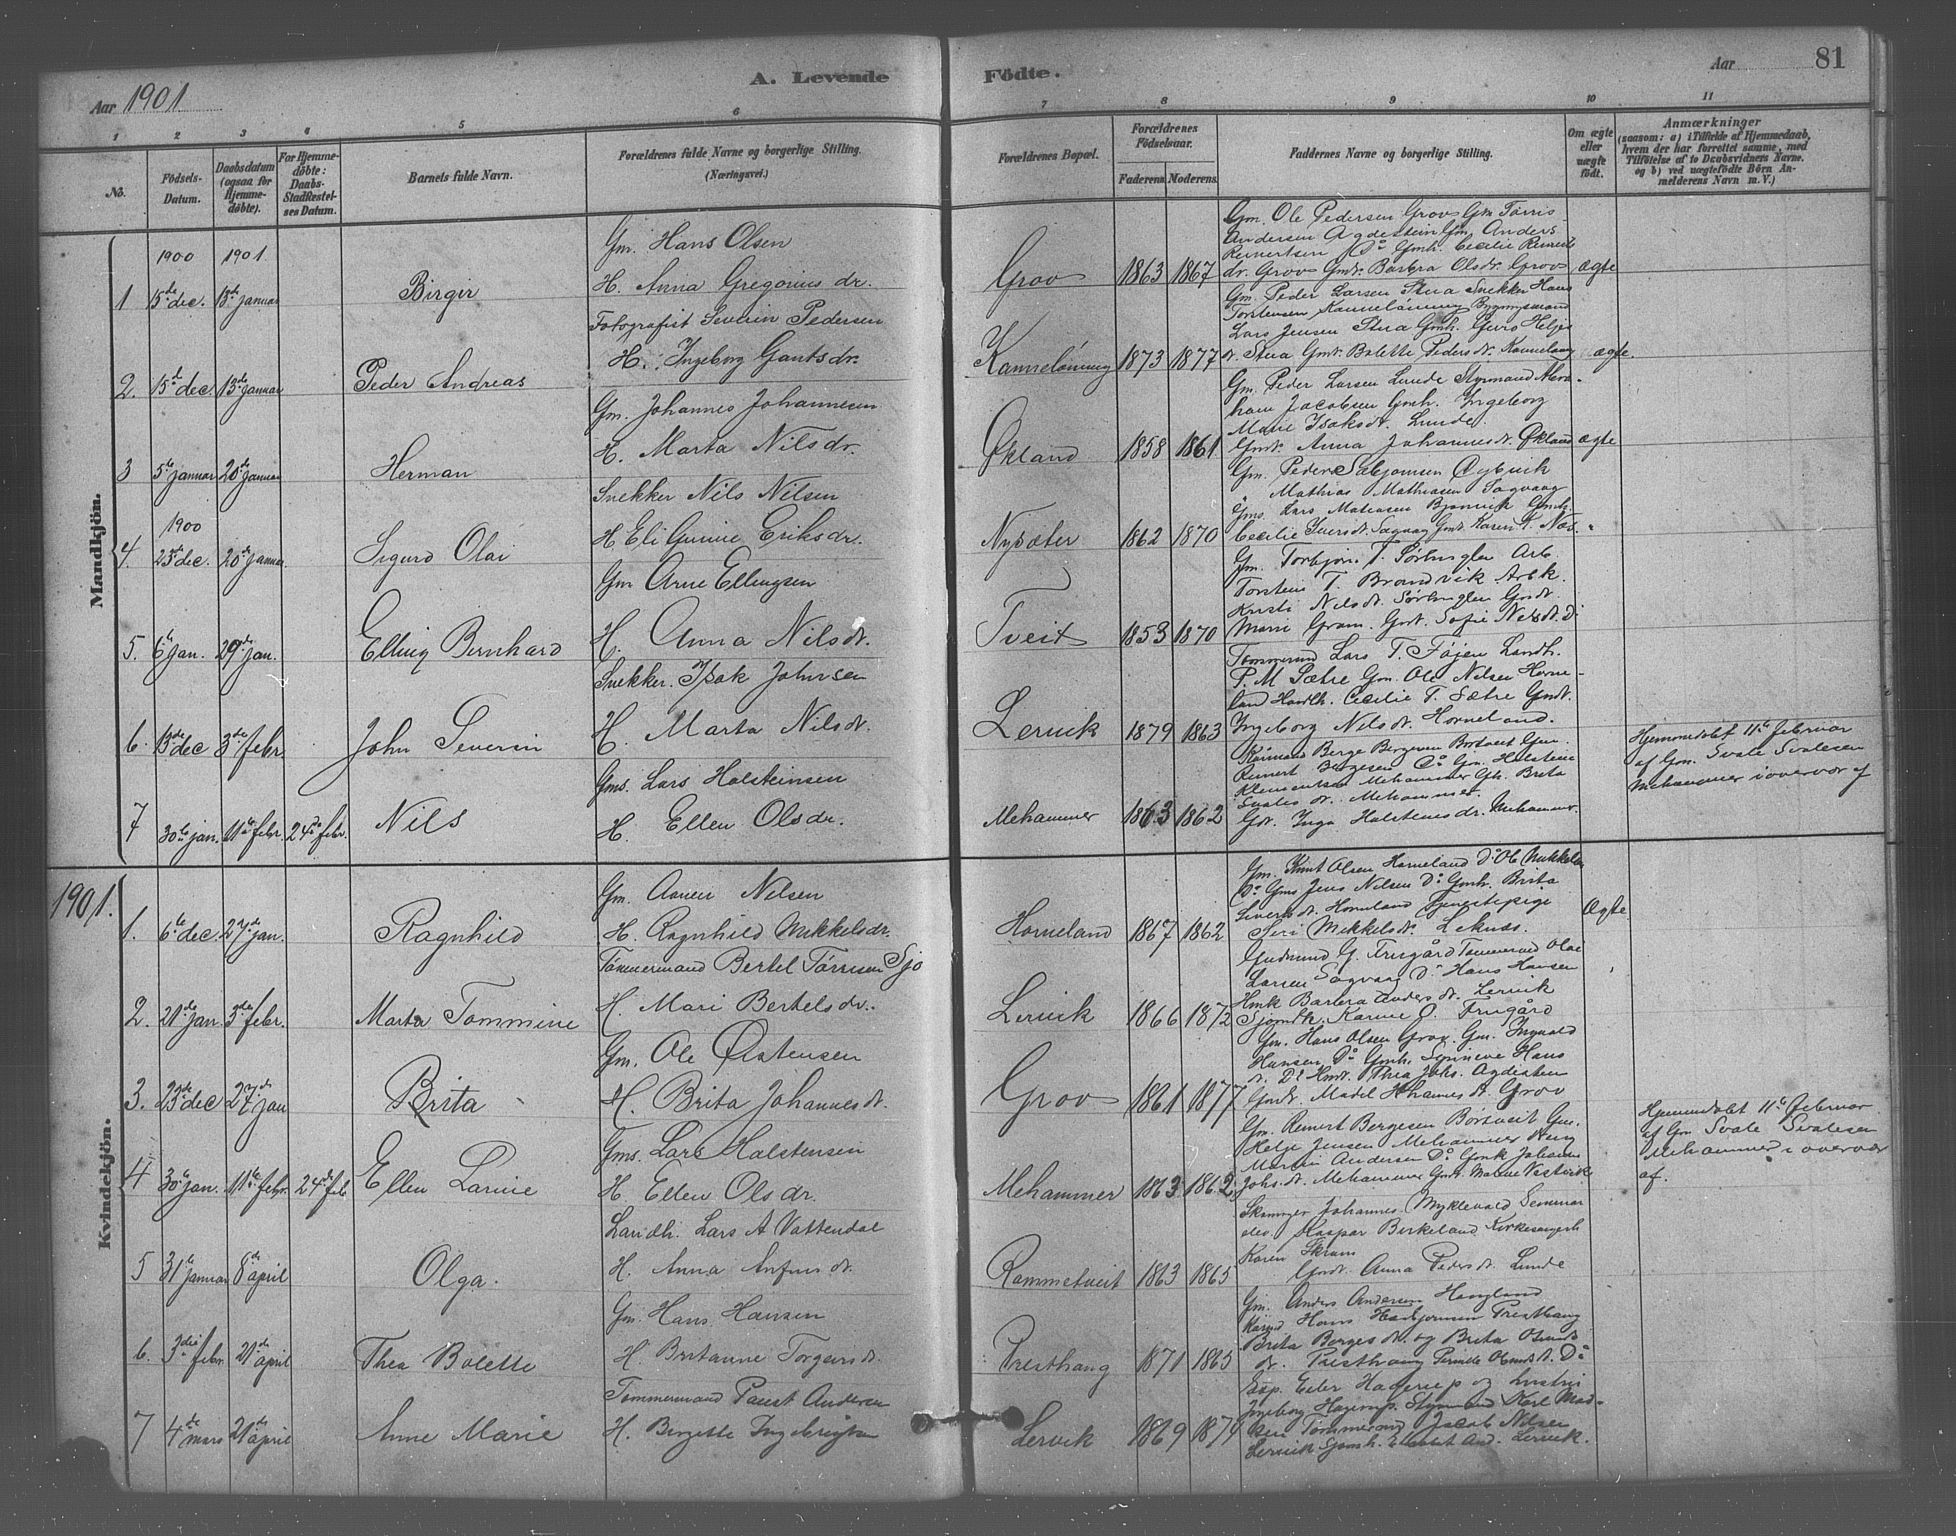 A. Levende Födte.
Aar 1901
Aar 81
1 2 3 4 5 6 7 8 9 10 11
No.
Födsels-Datum.
Daabsdatum (ogsaa for Hjemme-døbte).
For Hjemme-døbte: Daabs-Stadfæstel-ses Datum.
Barnets fulde Navn.
Forældrenes fulde Navne og borgerlige Stilling. (Næringsvei.)
Forældrenes Bopæl.
Forældrenes Fødselsaar.
Faderens Moderens
Faddernes Navne og borgerlige Stilling.
Om ægte eller uægte født.
Anmærkninger
(saasom: a) i Tilfælde af Hjemmedaab, hvem der har forrettet samme, med Tilføielse af to Daabsvidners Navne. og b) ved uægtefødte Børn An-melderens Navn m. V.)
Mandkjön.
1900 1901
1 15de dec. 13de januar Birger
Gm. Hans Olsen
H. Anna Gregorius dr.
Grov 1863 1867
Gm. Ole Pedersen Grov Gm Tørris
Andersen Agdestein Gm. Anders
Reinertsen Do Gmh. Cecilie Reinert
dr. Grov Gmdr. Barbra Olsdr. Grov ægte
2. 15de dec. 13de januar Peder Andreas
Fotografist Severin Pedersen
H. Ingeborg Gautsdr.
1873 1877
Gm. Peder Larsen Stua Snekker Hans
Torstensen
Lars Jensen Stua Gmh. Guro Helje
dr. Stua Gmdr. Bolette Pedersdr. ægte.
3 5te januar 20de januar Herman
Gm. Johannes Johannesen
H. Marta Nilsdr.
Økland 1858 1861
Gm. Peder Larsen Lunde Styrmand Abra-
ham Jacobsen Gmh. Ingeborg
Marie Isaksdr. Lunde
Gmdr. Anna Johannesdr. Økland ægte
1900
4. 23de dec. 20de januar Sigurd Olai
Snekker Nils Nilsen
H Eli Gurine Eriksdr.
Nysæter 1862 1870
Gm. Peder
Mathias Mathiasen Sagvaag
Gms. Lars Matiasen Gmh.
Cecilie Sagvaag Gmdr Karen
5. 6te jan. 29de jan. Elling Bernhard
Gm Arne Ellingsen
H. Anna Nilsdr.
Tveit 1853 1870
Gm. Torbjørn T. Arb.
Torstein T. Brandvik Arbk.
Kristi Nilsdr. Gmdr.
Marie Gmdr. Sofie Nilsdr. Do
6. 13de dec 3de febr. John Severin
Snekker. Isak Johnsen
H. Marta Nilsdr.
Lervik 1879 1863
Tømmermd Lars T. Føjen Landh.
P. M Sætre Gm. Ole Nilsen Horne-
land Handlh. Cecilie T. Sætre Gmdr.
Ingeborg Nilsdr. Horneland.
7 30te jan. 11te febr. 24de febr. Nils
Gms. Lars Halsteinsen
H. Ellen Olsdr.
Mehammer 1863 1862
Berge Bergesen Børtveit Gm
Reinert Bergesen Do Gm. Halstein
Klementsen Mehammer Gh. Brita
Svales dr. Mehammer
Gdr. Inga Halstensdr. Mehammer.
Hjemmedøbt 11te februar
af Gm. Svale Svalesen
Mehammer i overvær af
Kvindekjön.
1901.
1. 6te dec. 27de jan. Ragnhild
Gm. Nilsen
H. Ragnhild Mikkelsdr.
Horneland 1867 1862
Gm. Knut Olsen Horneland Do Ole Mikkelsen
Do Gms Jens Nilsen Do Gmh. Brita
Siversdr. Horneland Tjenestepige
Siri Mikkelsdr. Ægte
2. 21de jan. 3de febr. Marta Tommine
Tømmermand Bertel Tørrisen Sjo
H. Mari Bertelsdr.
Lervik 1866 1872
Gudmund G. Frugård Tømmermd Olai
Larsen Sagvaag Do Hans Hansen
Hmk Barbra Andersdr. Lervik
O. Frugård
3. 23de dec 27de jan Brita
Gm. Ole Østensen
H. Brita Johannesdr.
Grov 1861 1877
Gm. Hans Olsen Grov. Gm. Ingvald
Hansen Do Gmh. Hans
dr. Do Hmdr. Thea Johs. Agdestein
Gmdr. Johannesdr Grov
4 30te jan. 11te febr. 24de feb. Ellen Larine
Gms. Lars Halstensen
H. Ellen Olsdr.
Mehammer 1863 1862
Gm. Reinert Bergesen Børtveit Gm.
Helje Jensen Mehammer Ung
Martin Andersen Do Gmk Johanne
Johsdr. Mehammer Gmdr.
Hjemmedøbt 11te februar
af Gm Svale Svalesen
Mehammer i overvær
af.
5 31te januar 8de april Olga.
Landh. Lars A Vattendal
H. Anna dr.
Rammetveit 1863 1865
Johannes Myklevold Seminar
elev. Kaspar Birkeland Kirkesanger
Karen Skram
Gmdr. Anna Pedersdr. Lunde
6. 3die febr. 21de april Thea Bolette
Gm. Hans Hansen
H. Britanne Torgeirsdr.
Presthaug 1871 1865
Gm. Anders Andersen Haugland
Hans Presthaug
Brita Bergesdr. og Brita
dr. Presthaug dr. Do
7 4de mars 21de april Anne Marie
Tømmermand Paust Andersen
H. Bergette Ingebrigtsen
Lervik 1869 1874
Exp. Eiler Hagerup og hustru
Ingeborg Hagerup. Styrmand Karl Mad-
sen Tømmermd Jacob Nilsen
Lervik Sjømh. Elisabet And. Lervik.